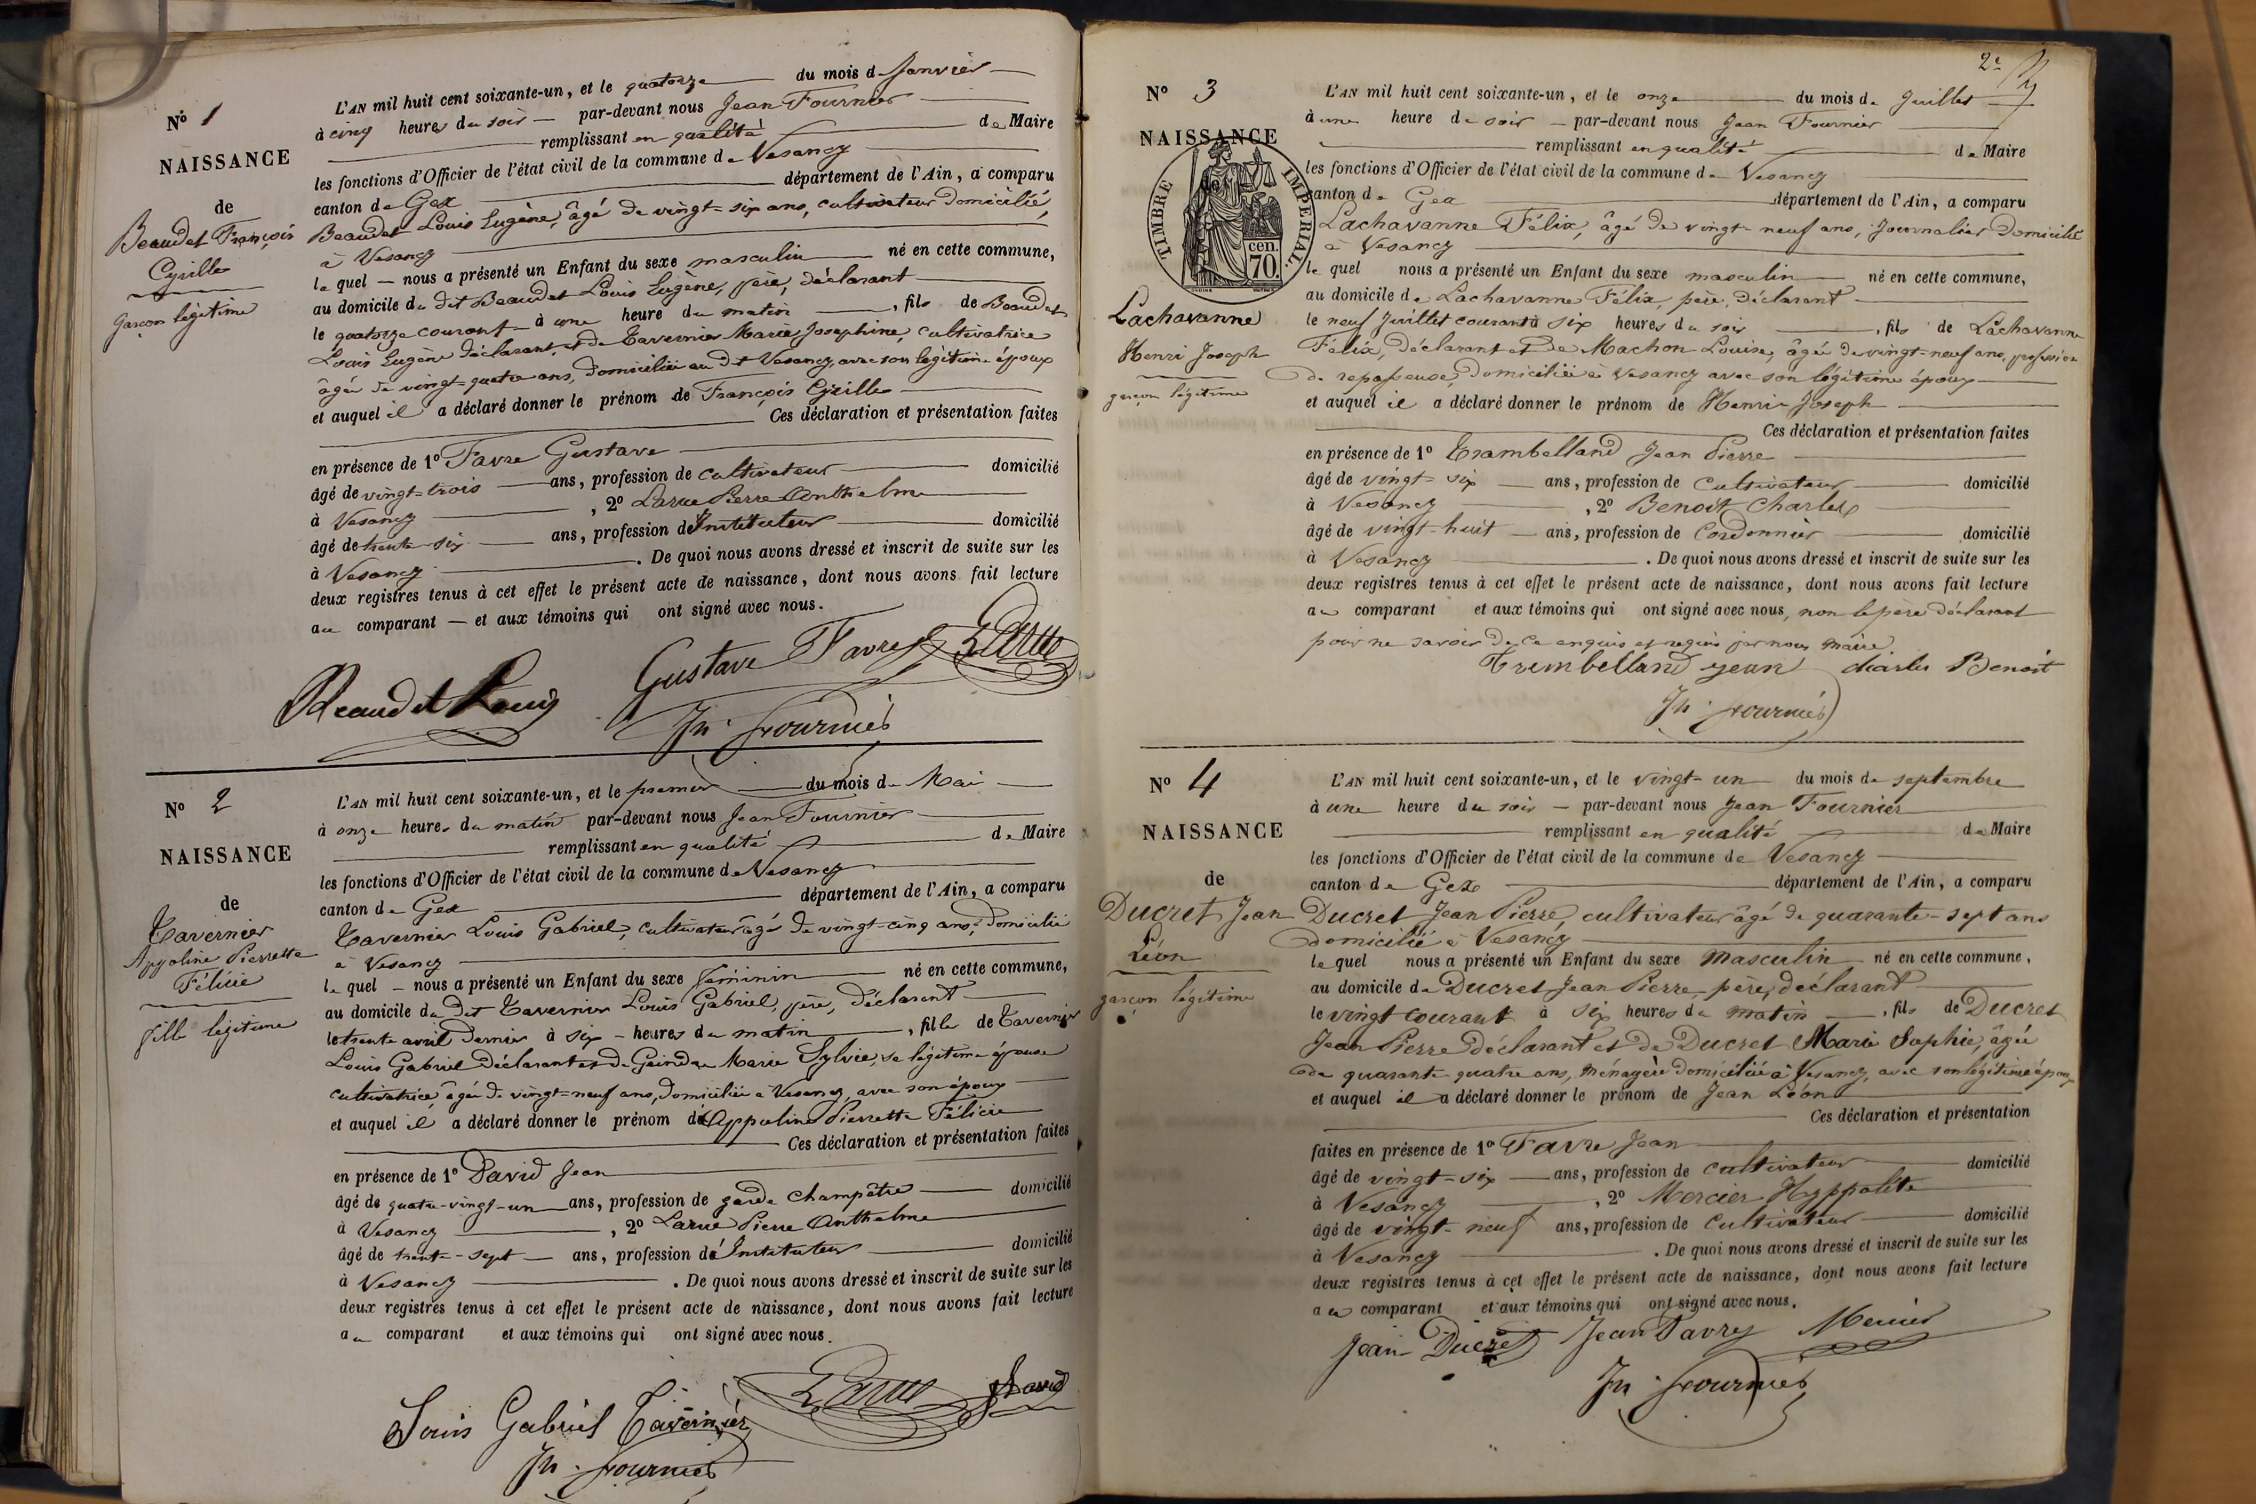 N° 1
NAISSANCE
de
Beaudet François
Cyrille
garçon légitime
L'AN mil huit cent soixante-un, et le quatorze du mois de Janvier
à cinq heures du soir par-devant nous Jean Fournier
remplissant en qualité de Maire
les fonctions d'Officier de l'état civil de la commune de Vesancy
canton de Gex département de l'Ain, a comparu
Beaudet Louis Eugène, âgé de vingt-six ans, cultivateur domicilié,
à Vesancy
le quel nous a présenté un Enfant du sexe masculin né en cette commune,
au domicile du dit Beaudet Louis Eugène, père, déclarant
le quatorze courant à une heure du matin, fils de Beaudet
Louis Eugène déclarant, et de Tavernier Marie Josephine, cultivatrice
âgée de vingt-quatre ans, domiciliée au dit Vesancy, avec son légitime époux
et auquel il a déclaré donner le prénom de François Cyrille
Ces déclaration et présentation faites
en présence de 1° Favre Gustave
âgé de vingt-trois ans, profession de cultivateur domicilié
à Vesancy, 2° Larue Pierre Anthelme
âgé de trente-six ans, profession de Instituteur domicilié
à Vesancy. De quoi nous avons dressé et inscrit de suite sur les
deux registres tenus à cet effet le présent acte de naissance, dont nous avons fait lecture
au comparant et aux témoins qui ont signé avec nous.
Gustave Favre Larue
Beaudet Louis
Jn. Fournier
N° 2
NAISSANCE
de
Tavernier
Appoline Pierrette
Félicie
fille légitime
L'AN mil huit cent soixante-un, et le premier du mois de Mai
à onze heures du matin par-devant nous Jean Fournier
remplissant en qualité de Maire
les fonctions d'Officier de l'état civil de la commune de Vesancy
canton de Gex département de l'Ain, a comparu
Tavernier Louis Gabriel, cultivateur âgé de vingt-cinq ans, domicilié
à Vesancy
le quel nous a présenté un Enfant du sexe féminin né en cette commune,
au domicile du dit Tavernier Louis Gabriel, père, déclarant
le trente avril dernier à six heures du matin, fille de Tavernier
Louis Gabriel déclarant et de Marie Sylvie, sa légitime épouse
cultivatrice, âgée de vingt-neuf ans, domiciliée à Vesancy, avec son époux
et auquel il a déclaré donner le prénom de Appoline Pierrette Félicie
Ces déclaration et présentation faites
en présence de 1° David Jean
âgé de quatre-vingt-un ans, profession de garde champêtre domicilié
à Vesancy, 2° Larue Pierre Anthelme
âgé de trente-sept ans, profession de Instituteur domicilié
à Vesancy. De quoi nous avons dressé et inscrit de suite sur les
deux registres tenus à cet effet le présent acte de naissance, dont nous avons fait lecture
au comparant et aux témoins qui ont signé avec nous.
Larue David
Louis Gabriel Tavernier
Jn. Fournier
2e
N° 3
NAISSANCE
de
TIMBRE IMPERIAL.
70 cen.
Lachavanne
Henri Joseph
garçon légitime
L'AN mil huit cent soixante-un, et le onze du mois de Juillet
à une heure du soir par-devant nous Jean Fournier
remplissant en qualité de Maire
les fonctions d'Officier de l'état civil de la commune de Vesancy
canton de Gex département de l'Ain, a comparu
Lachavanne Félix, âgé de vingt-neuf ans, Journalier domicilié
à Vesancy
le quel nous a présenté un Enfant du sexe masculin né en cette commune,
au domicile de Lachavanne Félix, père, déclarant
le neuf Juillet courant à six heures du soir, fils de Lachavanne
Félix, déclarant et de Machon Louise, âgée de vingt-neuf ans, profession
de repasseuse, domiciliée à Vesancy avec son légitime époux
et auquel il a déclaré donner le prénom de Henri Joseph
Ces déclaration et présentation faites
en présence de 1° Trambelland Jean Pierre
âgé de vingt-six ans, profession de cultivateur domicilié
à Vesancy, 2° Benoit Charles
âgé de vingt-huit ans, profession de Cordonnier domicilié
à Vesancy. De quoi nous avons dressé et inscrit de suite sur les
deux registres tenus à cet effet le présent acte de naissance, dont nous avons fait lecture
au comparant et aux témoins qui ont signé avec nous, non le père déclarant
pour ne savoir de ce enquis et requis par nous maire
Trumbelland jean charles Benoit
Jn. Fournier
N° 4
NAISSANCE
de
Ducret Jean
Léon
garçon légitime
L'AN mil huit cent soixante-un, et le vingt-un du mois de septembre
à une heure du soir par-devant nous Jean Fournier
remplissant en qualité de Maire
les fonctions d'Officier de l'état civil de la commune de Vesancy
canton de Gex département de l'Ain, a comparu
Ducret Jean Pierre, cultivateur âgé de quarante-sept ans
domicilié à Vesancy
le quel nous a présenté un Enfant du sexe Masculin né en cette commune,
au domicile de Ducret Jean Pierre, père, déclarant
le vingt courant à six heures du matin, fils de Ducret
Jean Pierre déclarant et de Ducret Marie Sophie, âgée
de quarante-quatre ans, ménagère domiciliée à Vesancy, avec son légitime époux
et auquel il a déclaré donner le prénom de Jean Léon
Ces déclaration et présentation
faites en présence de 1° Favre Jean
âgé de vingt-six ans, profession de cultivateur domicilié
à Vesancy, 2° Mercier Hyppolite
âgé de vingt-neuf ans, profession de cultivateur domicilié
à Vesancy. De quoi nous avons dressé et inscrit de suite sur les
deux registres tenus à cet effet le présent acte de naissance, dont nous avons fait lecture
au comparant et aux témoins qui ont signé avec nous.
Jean Ducret Jean Favre Mercier
Jn. Fournier